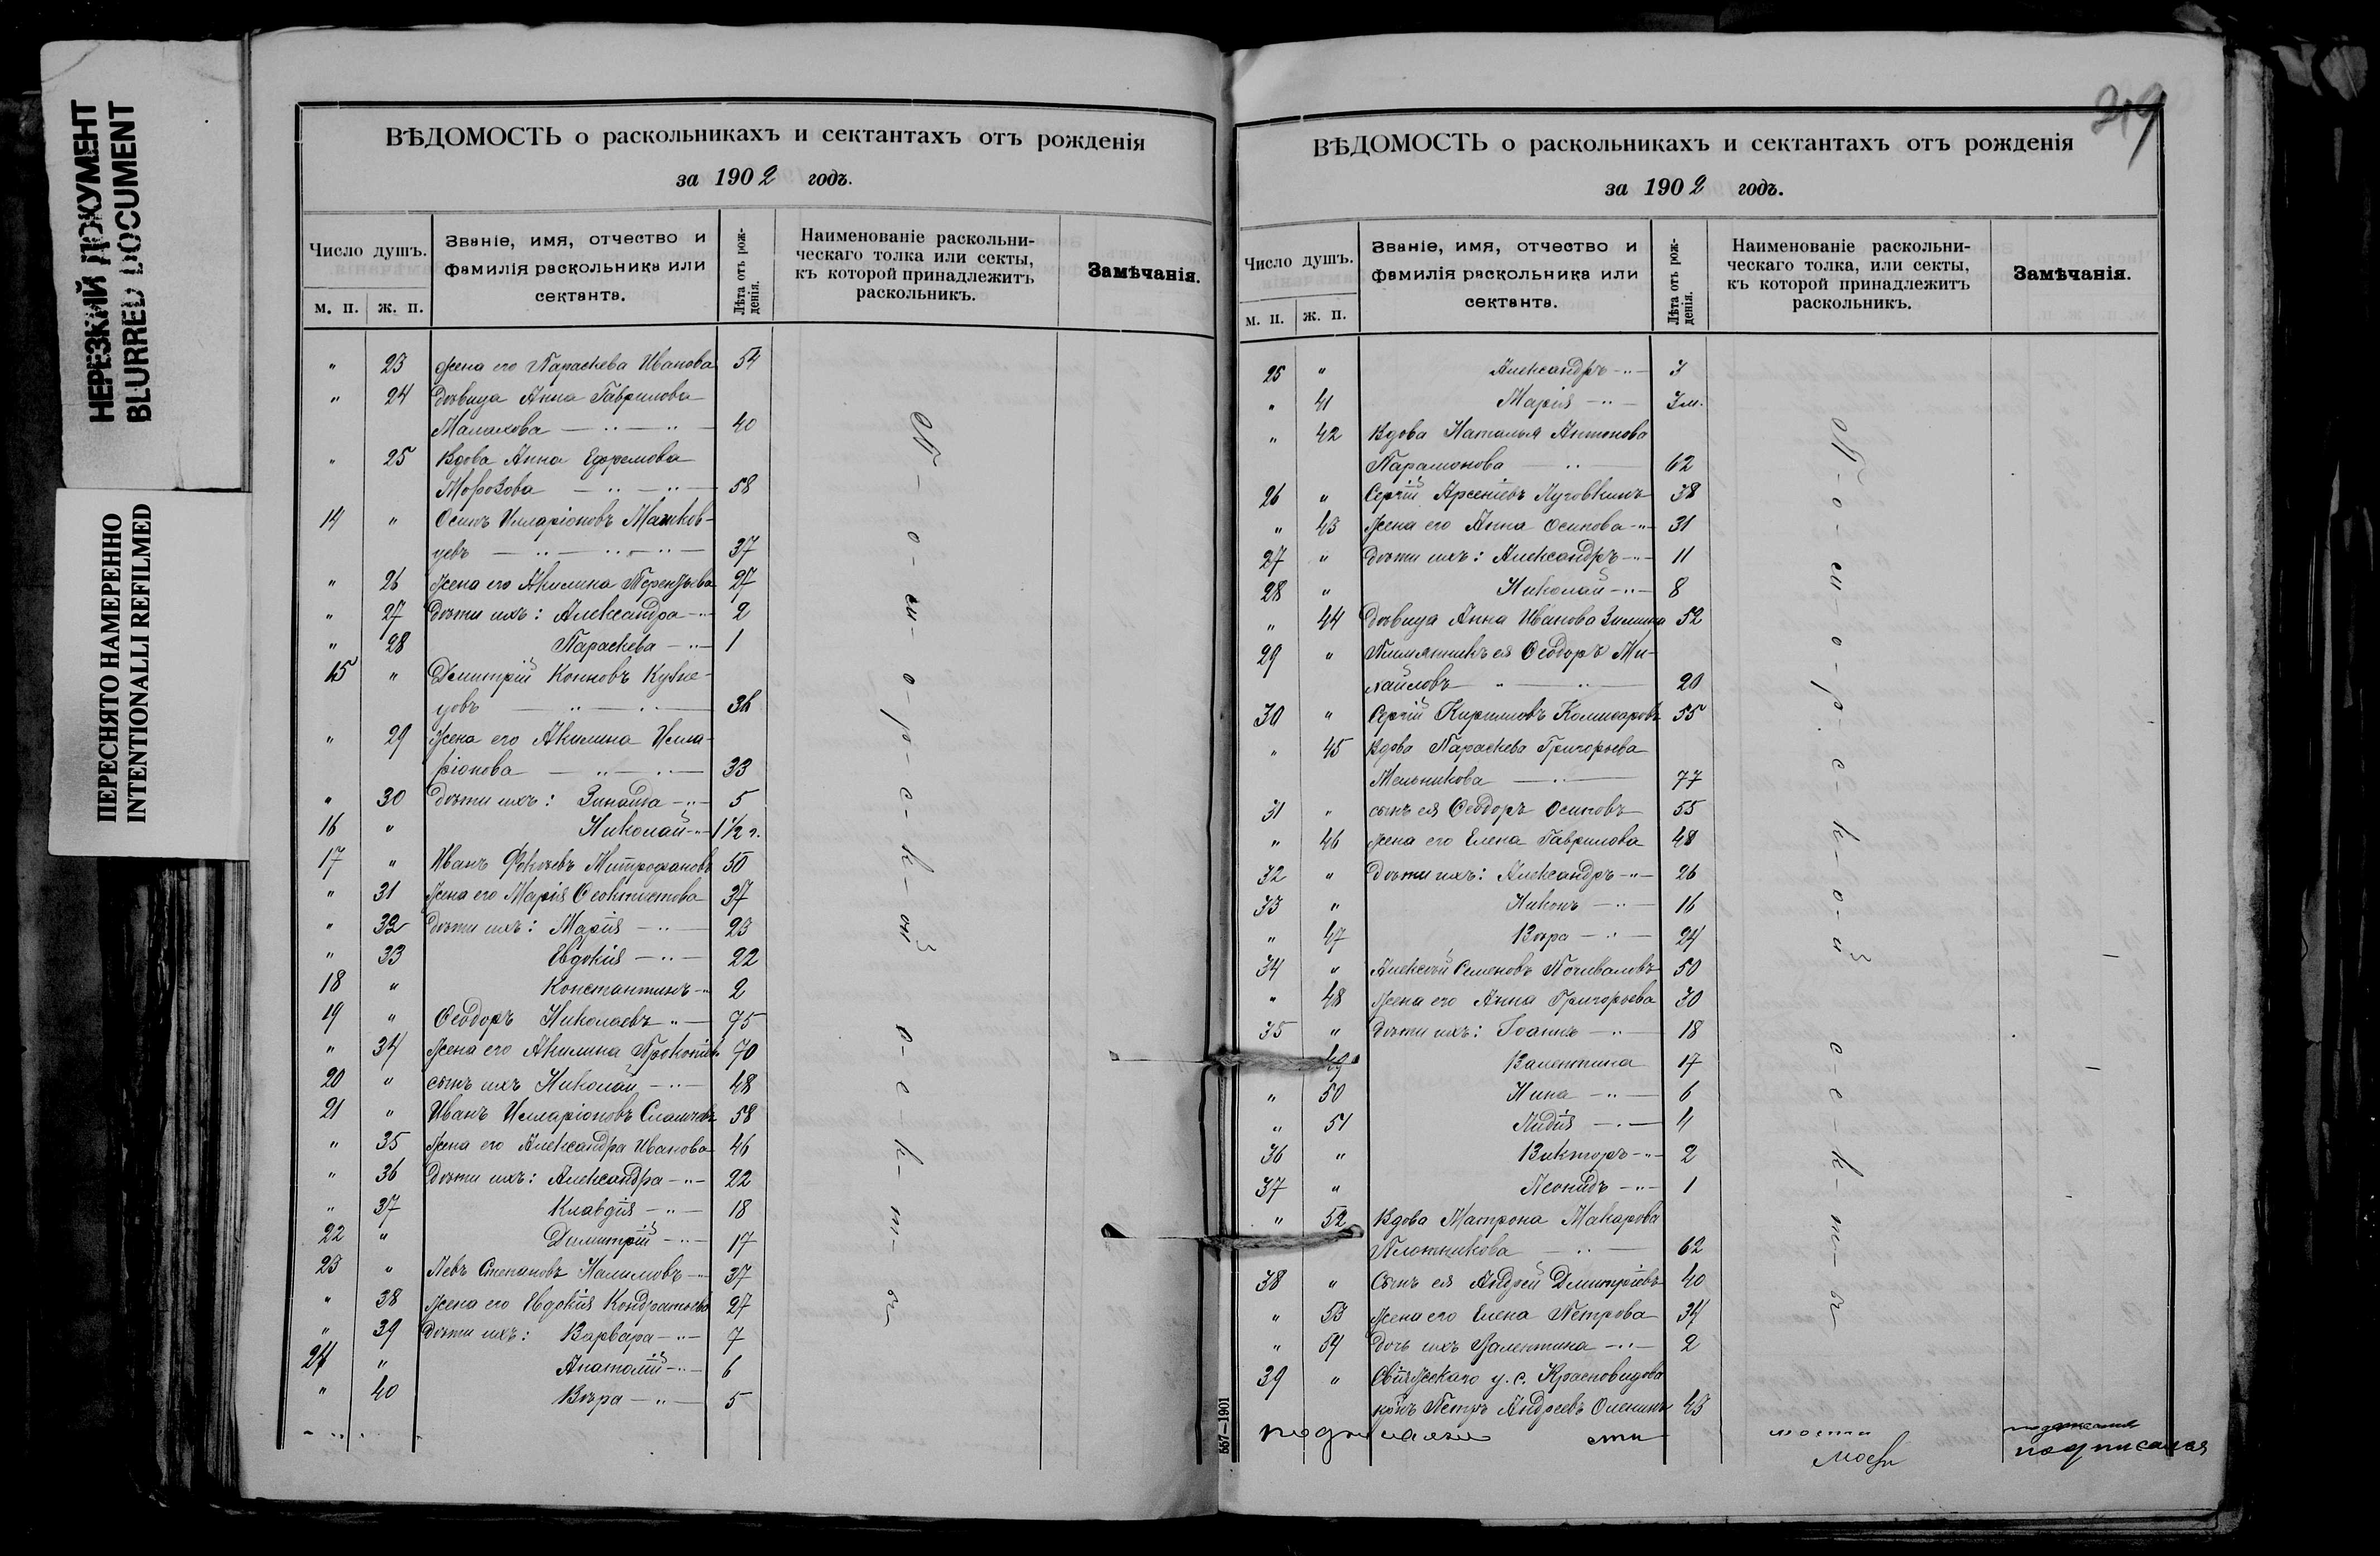 НЕРЕЗКИЙ ДОКУМЕНТ
BLURRED DOCUMENT
ПЕРЕСНЯТО НАМЕРЕННО
INTENTIONALLI REFILMED
ВѢДОМОСТЬ о раскольникахъ и сектантахъ отъ рожденія
за 1902 годъ.
Число душъ.
м. п. ж. п.
Званіе, имя, отчество и
фамилія раскольника или
сектанта.
Лѣта отъ рож-
денія.
Наименованіе раскольни-
ческаго толка или секты,
къ которой принадлежитъ
раскольникъ.
Замѣчанія.
" 23 Жена его Параскева Иванова 54
" 24 Дѣвица Анна Гаврилова
Малахова 40
" 25 Вдова Анна Ефремова
Морозова 58
14 " Осипъ Илларіоновъ Машков-
цевъ 37
" 26 Жена его Акилина Терентьева 27
" 27 Дѣти ихъ: Александра 2
" 28 Параскева 1
15 " Димитрій Кононовъ Кузне-
цовъ 36
" 29 Жена его Акилина Илла-
ріонова 33
" 30 Дѣти ихъ: Зинаида 5
16 " Николай 1 1/2 г.
17 " Иванъ Фокіевъ Митрофановъ 50
" 31 Жена его Марія Ѳеоктистова 37
" 32 Дѣти ихъ: Марія 23
" 33 Евдокія 22
18 " Константинъ 2
19 " Ѳеодоръ Николаевъ 75
" 34 Жена его Акилина Прокопіев 70
20 " сынъ ихъ Николай 48
21 " Иванъ Илларіоновъ 58
" 35 Жена его Александра Иванова 46
" 36 Дѣти ихъ: Александра 22
" 37 Клавдія 18
22 " Димитрій 17
23 " Левъ Степановъ Налимовъ 37
" 38 Жена его Евдокія Кондратьева 27
" 39 Дѣти ихъ: Варвара 7
24 " Анатолій 6
" 40 Вѣра 5
П-о-м-о-р-с-к-ой
с-е-к-т-ы
ВѢДОМОСТЬ о раскольникахъ и сектантахъ отъ рожденія
за 1902 годъ.
Число душъ.
м. п. ж. п.
Званіе, имя, отчество и
фамилія раскольника или
сектанта.
Лѣта отъ рож-
денія.
Наименованіе раскольни-
ческаго толка, или секты,
къ которой принадлежитъ
раскольникъ.
Замѣчанія.
25 " Александръ 3
" 41 Марія 3 м.
" 42 Вдова Наталья Антонова
Парамонова 62
26 " Сергій Арсеніевъ Луговкинъ 38
" 43 Жена его Анна Осипова 31
27 " Дѣти ихъ: Александръ 11
28 " Николай 8
" 44 Дѣвица Анна Иванова Зимина 52
29 " Племянникъ ея Ѳеодоръ Ми-
хайловъ 20
30 " Сергій Кирилловъ Комисаровъ 55
" 45 Вдова Параскева Григорьева
Мельникова 77
31 " сынъ ея Ѳеодоръ Осиповъ 55
" 46 Жена его Елена Гаврилова 48
32 " Дѣти ихъ: Александръ 26
33 " Никонъ 16
" 47 Вѣра 24
34 " Алексѣй Семеновъ Почиваловъ 50
" 48 Жена его Анна Григорьева 30
35 " Дѣти ихъ: Іоаннъ 18
49 Валентина 17
" 50 Нина 6
" 51 Лидія 4
36 " Викторъ 2
37 " Леонидъ 1
" 52 Вдова Матрона Макарова
Плотникова 62
38 " Сынъ ея Андрей Димитріевъ 40
" 53 Жена его Елена Петрова 34
" 54 Дочь ихъ Валентина 2
39 " Свіяжскаго у. с. Красновидова
кр-нъ Петръ Андреевъ Оленинъ 43
П-о-м-о-р-с-к-о-й
с-е-к-т-ы
557—1901